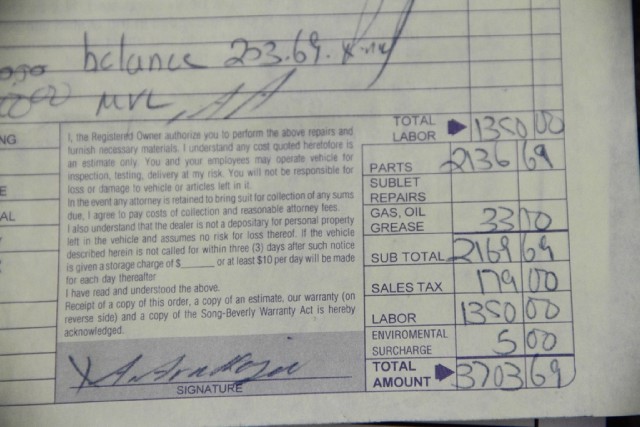 balance 203.69.
MVL
TOTAL LABOR 1350 00
I, the Registered Owner authorize you to perform the above repairs and
furnish necessary materials. I understand any cost quoted heretofore is
an estimate only. You and your employees may operate vehicle for
inspection, testing, delivery at my risk. You will not be responsible for
loss or damage to vehicle or articles left in it.
In the event any attorney is retained to bring suit for collection of any sums
due, I agree to pay costs of collection and reasonable attorney fees.
I also understand that the dealer is not a depositary for personal property
left in the vehicle and assumes no risk for loss thereof. If the vehicle
described herein is not called for within three (3) days after such notice
is given a storage charge of $______ or at least $10 per day will be made
for each day thereafter
I have read and understood the above.
Receipt of a copy of this order, a copy of an estimate, our warranty (on
reverse side) and a copy of the Song-Beverly Warranty Act is hereby
acknowledged.
X
SIGNATURE
PARTS 2136 69
SUBLET
REPAIRS
GAS, OIL
GREASE 33 00
SUB TOTAL 2169 69
SALES TAX 179 00
LABOR 1350 00
ENVIROMENTAL
SURCHARGE 5 00
TOTAL
AMOUNT 3703 69
NG
E
AL